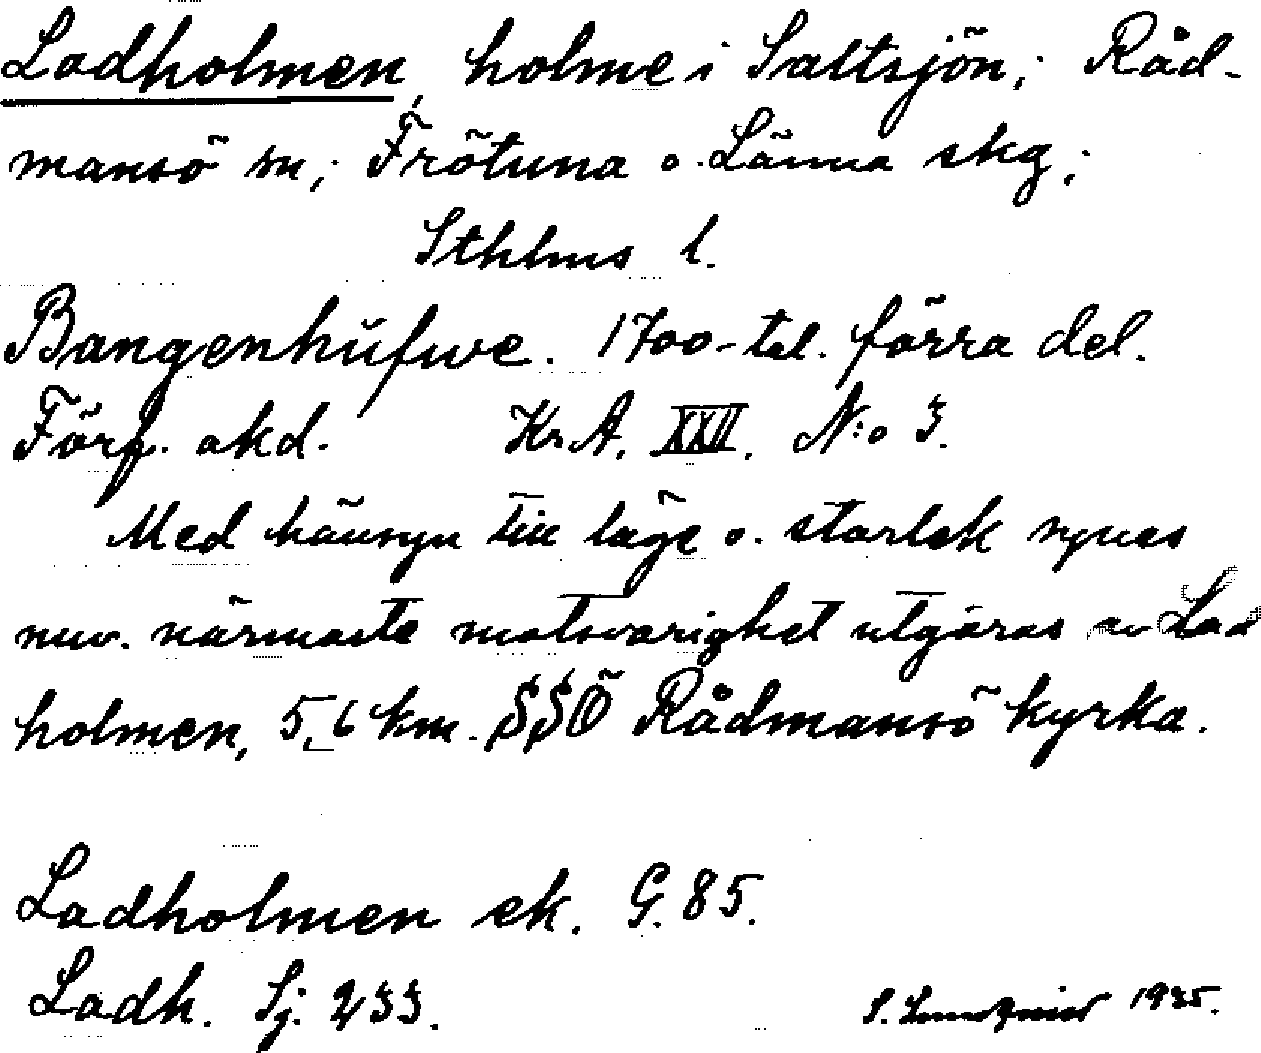 Ladholmen, holme i Saltsjön; Råd-
mansö sn; Frötuna o. Länna skg;
Sthlms l.
Bangenhüfwe. 1700-tal. förra del.
Förf. okd. Kr. A. XXII. N:o 3.
Med hänsyn till läge o. storlek synes
nuv. närmaste motsvarighet utgöras av Lad
holmen, 5,6 km. SSÖ Rådmansö kyrka.
Ladholmen ek. G. 85.
Ladh. Sj. 233.
1935.